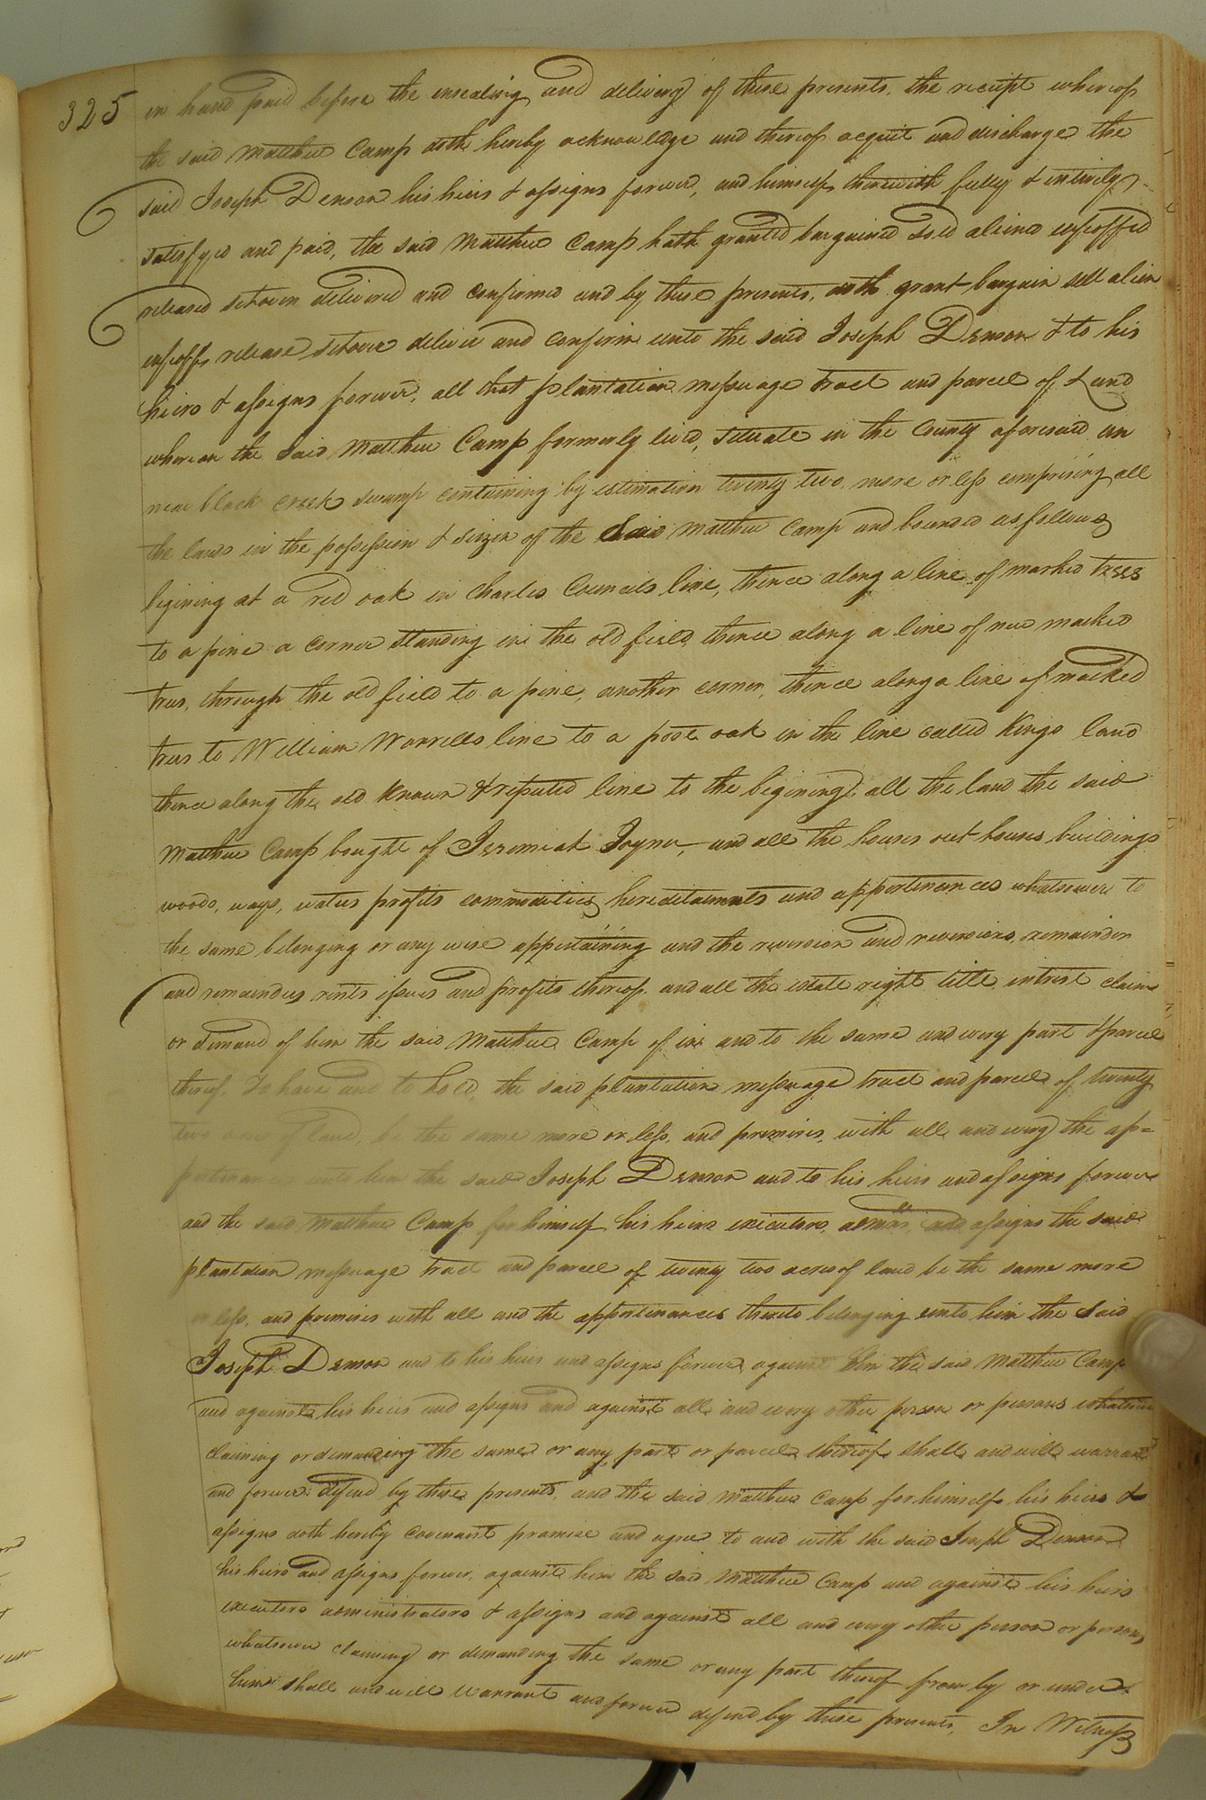 325
in hand paid before the ensealing and delivery of these presents, the receipt whereof
the said Matthew Camp doth hereby acknowledge and thereof acquit and discharge the
said Joseph Denson his heirs & assigns forever, and himself therewith fully & intirely
satisfyed and paid, the said Matthew Camp hath granted bargained sold aliend enfeoffed
released setover delivered and confirmed and by these presents, doth grant bargain sell alien
enfeoff, release, setover deliver and confirm unto the said Joseph Denson & to his
heirs & assigns forever, all that plantation messuage tract and parcel of Land
whereon the Said Matthew Camp formerly lived, situate in the County aforesaid on
near black creek swamp containing by estimation twenty two, more or less comprising all
the land in the possession & seizen of the Said Matthew Camp and bounded as follows
begining at a red oak in Charles Councils line, thence along a line of marked trees
to a pine a corner standing in the old field thence along a line of new marked
trees, through the old field to a pine, another corner, thence along a line of marked
trees to William Worrells line to a post oak in the line called Kings land
thence along the old known & reputed line to the begining, all the land the said
Matthew Camp bought of Jeremiah Joyner, and all the houses out houses buildings
woods, ways, waters profits commodities, hereditaments and appertinances whatsoever to
the same belonging or any wise appertaining and the reversion and reversions, remainder
and remainders rents issues and profits thereof and all the estate right title intrest claim
or demand of him the said Matthew Camp of in and to the same and every part & parcel
thereof. To have and to hold, the said plantation messuage tract and parcel of twenty
two acres of land, be the same more or less, and premises, with all and every the ap=
pertinances unto him the said Joseph Denson and to his heirs and assigns forever
and the said Matthew Camp for himself his heirs executors, admrs. and assigns the said
plantation messuage tract and parcel of twenty two acres of land be the same more
or less, and premises with all and the appertinances thereto belonging unto him the said
Joseph Denson and to his heirs and assigns forever, against him the said Matthew Camp
and against his heirs and assigns and against all and every other person or persons whatsoever
claiming or demanding the same or any part or parcel thereof shall and will warrant
and forever defend by these presents, and the said Matthew Camp for himself his heirs &
assigns doth hereby covenant promise and agree to and with the said Joseph Denson
his heirs and assigns forever, against him the said Matthew Camp and against his heirs
executors administrators & assigns and against all and every other person or persons,
whatsoever claiming or demanding the same or any part thereof from by or under
him shall and will warrant and forever defend by these presents, In Witness